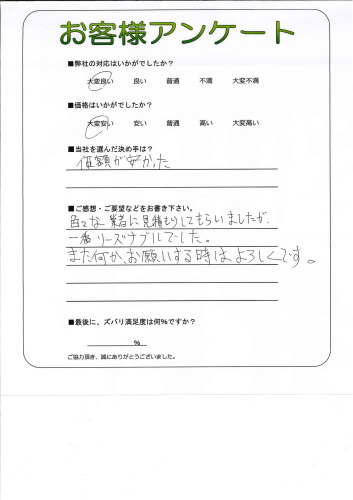 お客様アンケート
■弊社の対応はいかがでしたか？
大変良い 良い 普通 不満 大変不満
■価格はいかがでしたか？
大変安い 安い 普通 高い 大変高い
■当社を選んだ決め手は？
価額が安かった
■ご感想・ご要望などをお書き下さい。
色々な業者に見積もりしてもらいましたが、
一番リーズナブルでした。
また何か、お願いする時は、よろしくです。
■最後に、ズバリ満足度は何％ですか？
％
ご協力頂き、誠にありがとうございました。